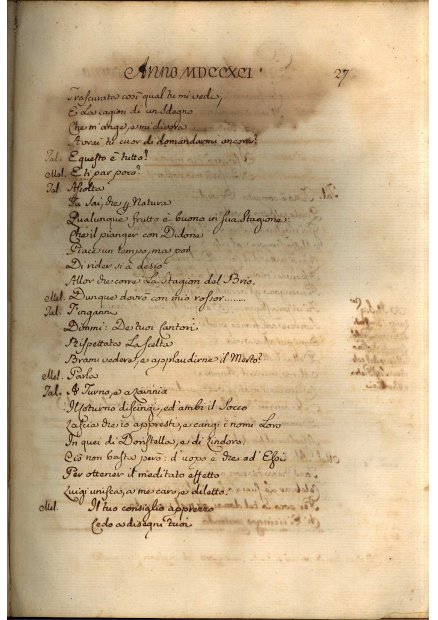 ANNO MDCCXCI
27
Trascurata così qual tu mi vedi,
È la cagion di un sdegno
Che m'ange, e mi divora
Avrai tu cuor di domandarmi ancora?
Tal. E questo è tutto?
Mel. E ti par poco?
Tal. Ascolta
Tu sai, che p Natura
Qualunque frutto è buono in sua stagione;
Che il pianger con Didone
Piace un tempo, ma poi
Di rider si à desio
Allor che corre La Stagion del Brio.
Mel. Dunque dovrò con mio rossor........
Tal. T'inganni
Dimmi: De tuoi Cantori
Rispettata La scelta
Brami vedere, e applaudirne il Merto?
Mel. Parla
Tal. A Turno, e a
Il Coturno discingi, ed'ambi il Socco
Lascia che io appresti, e cangi i nomi Loro
In quei di Doristella, e di Lindoro.
Ciò non basta però: d'uopo è che ad' Essi
Per ottener il meditato effetto
Luigi unisca, a me caro, e diletto.
Mel. Il tuo consiglio apprezzo
Cedo a disegni tuoi